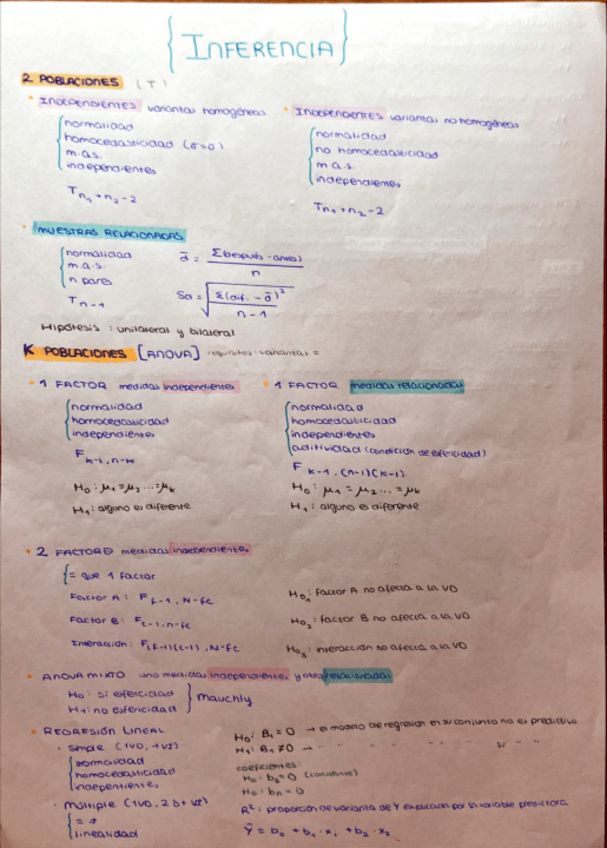 {INFERENCIA}
2 POBLACIONES (T)
• INDEPENDIENTES varianzas homogéneas
normalidad
homocedasticidad (σ=σ)
m.a.s.
independientes
T n₁+n₂-2
• INDEPENDIENTES varianzas no homogéneas
normalidad
no homocedasticidad
m.a.s.
independientes
T n₁+n₂-2
• MUESTRAS RELACIONADAS
normalidad
m.a.s.
n pares
T n-1
d̄ = Σ(después - antes) / n
Sd = √( Σ(dif. - d̄)² / n-1 )
Hipótesis : unilateral y bilateral
K POBLACIONES [ANOVA] requisitos varianzas =
• 1 FACTOR medidas independientes
normalidad
homocedasticidad
independientes
F k-1, n-k
H₀: μ₁=μ₂...=μk
H₁: alguno es diferente
• 1 FACTOR medidas relacionadas
normalidad
homocedasticidad
independientes
aditividad (condición de esfericidad)
F k-1, (n-1)(k-1)
H₀: μ₁=μ₂...=μk
H₁: alguno es diferente
• 2 FACTORES medidas independientes
{= que 1 factor
Factor A: F f-1, N-fc
Factor B: F c-1, n-fc
Interacción: F (f-1)(c-1), N-fc
H₀₁: factor A no afecta a la VD
H₀₂: factor B no afecta a la VD
H₀₃: interacción no afecta a la VD
• ANOVA MIXTO una medidas independientes y otra relacionadas
H₀: sí esfericidad
H₁: no esfericidad
} Mauchly
• REGRESIÓN LINEAL
• simple (1VD, 1VI)
normalidad
homocedasticidad
independientes
• múltiple (1VD, 2 ó + VI)
linealidad
H₀: B₁=0 → el modelo de regresión en su conjunto no es predictivo
H₁: B₁≠0 → " " " " " sí " "
coeficientes:
H₀: b₀=0 (constante)
H₀: bₙ=0
R²: proporción de varianza de Y explicada por la variable predictora
Ŷ = b₀ + b₁·x₁ + b₂·x₂